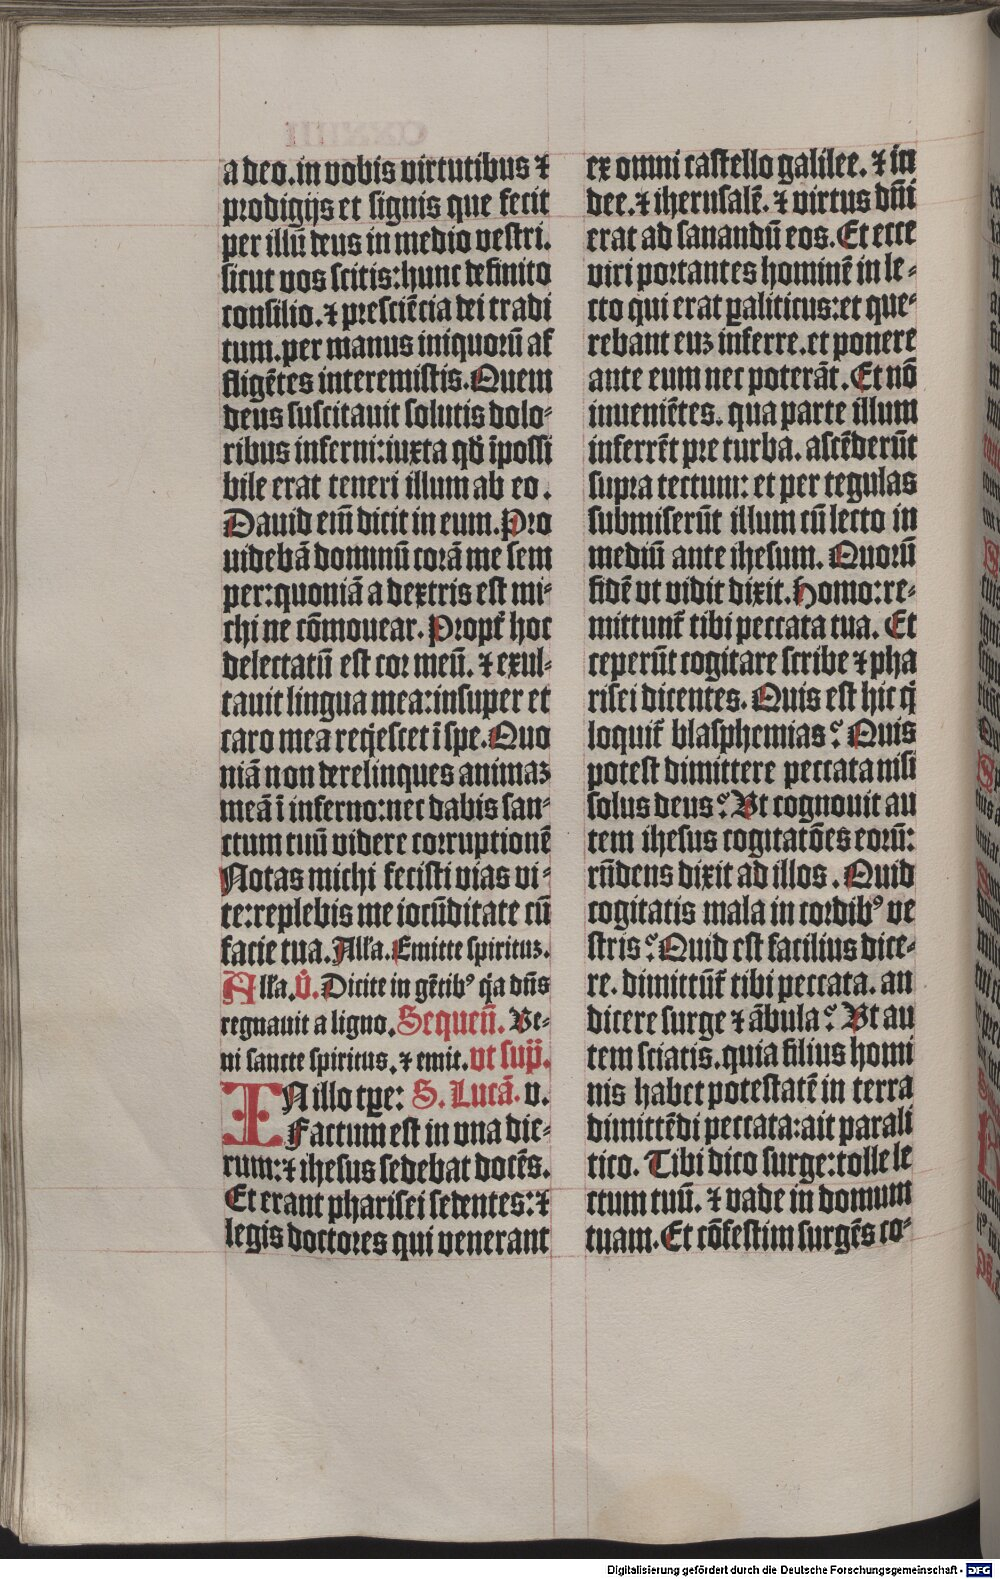 a deo. in vobis virtutibus ⁊
prodigijs et signis que fecit
per illū deus in medio vestri.
sicut vos scitis: hunc definito
consilio. ⁊ presciēcia dei tradi
tum. per manus iniquorū af
fligētes interemistis. Quem
deus suscitauit solutis dolo-
ribus inferni: iuxta qď īpossi
bile erat teneri illum ab eo.
Dauid em̄ dicit in eum. Pro
uidebā dominū corā me sem
per: quoniā a dextris est mi-
chi ne cōmouear. Propt̄ hoc
delectatū est cor meū. ⁊ exul-
tauit lingua mea: insuper et
caro mea reqͥescet ī spe. Quo
niā non derelinques animaꝫ
meā ī inferno: nec dabis san-
ctum tuū videre corruptionē
Notas michi fecisti vias vi-
te: replebis me iocūditate cū
facie tua. Alla. Emitte spirituꝫ.
Alľa. V̄. Dicite in gētibꝰ qͣa dn̄s
regnauit a ligno. Sequen̄. Ve-
ni sancte spiritus. ⁊ emit. vt sup̄.
IN illo tꝑe: S. Lucā. v.
Factum est in vna die-
rum: ⁊ ihesus sedebat docēs.
Et erant pharisei sedentes: ⁊
legis doctores qui venerant
ex omni castello galilee. ⁊ in
dee. ⁊ iherusalē. ⁊ virtus dn̄i
erat ad sanandū eos. Et ecce
viri portantes hominē in le-
cto qui erat ꝑaliticus: et que-
rebant euꝫ inferre. et ponere
ante eum nec poterāt. Et nō
inueniētes. qua parte illum
inferrēt pre turba. ascēderūt
supra tectum: et per tegulas
submiserūt illum cū lecto in
mediū ante ihesum. Quorū
fidē vt vidit dixit. Homo: re-
mittunt̄ tibi peccata tua. Et
ceperūt cogitare scribe ⁊ pha
risei dicentes. Quis est hic qͥ
loquit̄ blasphemias? Quis
potest dimittere peccata nisi
solus deus? Vt cognouit au
tem ihesus cogitatōes eorū:
rn̄dens dixit ad illos. Quid
cogitatis mala in cordibꝰ ve
stris? Quid est facilius dice-
re. dimittūt̄ tibi peccata. an
dicere surge ⁊ ābula? Vt au
tem sciatis. quia filius homi
nis habet potestatē in terra
dimittēdi peccata: ait parali
tico. Tibi dico surge: tolle le
ctum tuū. ⁊ vade in domum
tuam. Et cōfestim surgēs co-
Digitalisierung gefördert durch die Deutsche Forschungsgemeinschaft - DFG